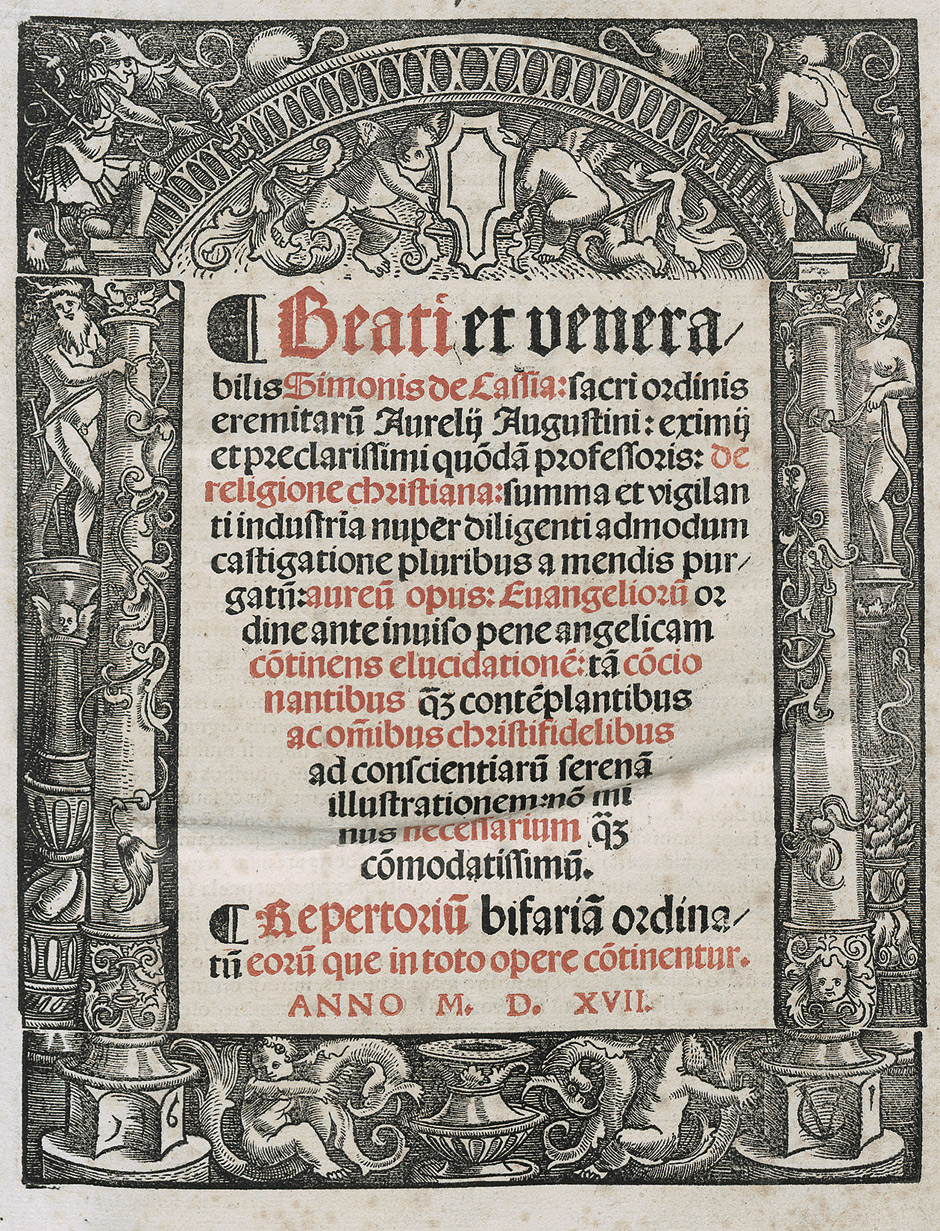 ¶ Beati et venera/
bilis Simonis de Cassia: sacri ordinis
eremitarū Aurelij Augustini: eximij
et preclarissimi quōdā professoris: de
religione christiana: summa et vigilan
ti industria nuper diligenti admodum
castigatione pluribus a mendis pur/
gatū: aureū opus: Euangeliorū or
dine ante inuiso pene angelicam
cōtinens elucidationē: tā cōcio
nantibus qȝ contēplantibus
ac om̄ibus christifidelibus
ad conscientiarū serenā
illustrationem: nō mi
nus necessarium qȝ
cōmodatissimū.
¶ Repertoriū bifariā ordina/
tū eorū que in toto opere cōtinentur.
ANNO M. D. XVII.